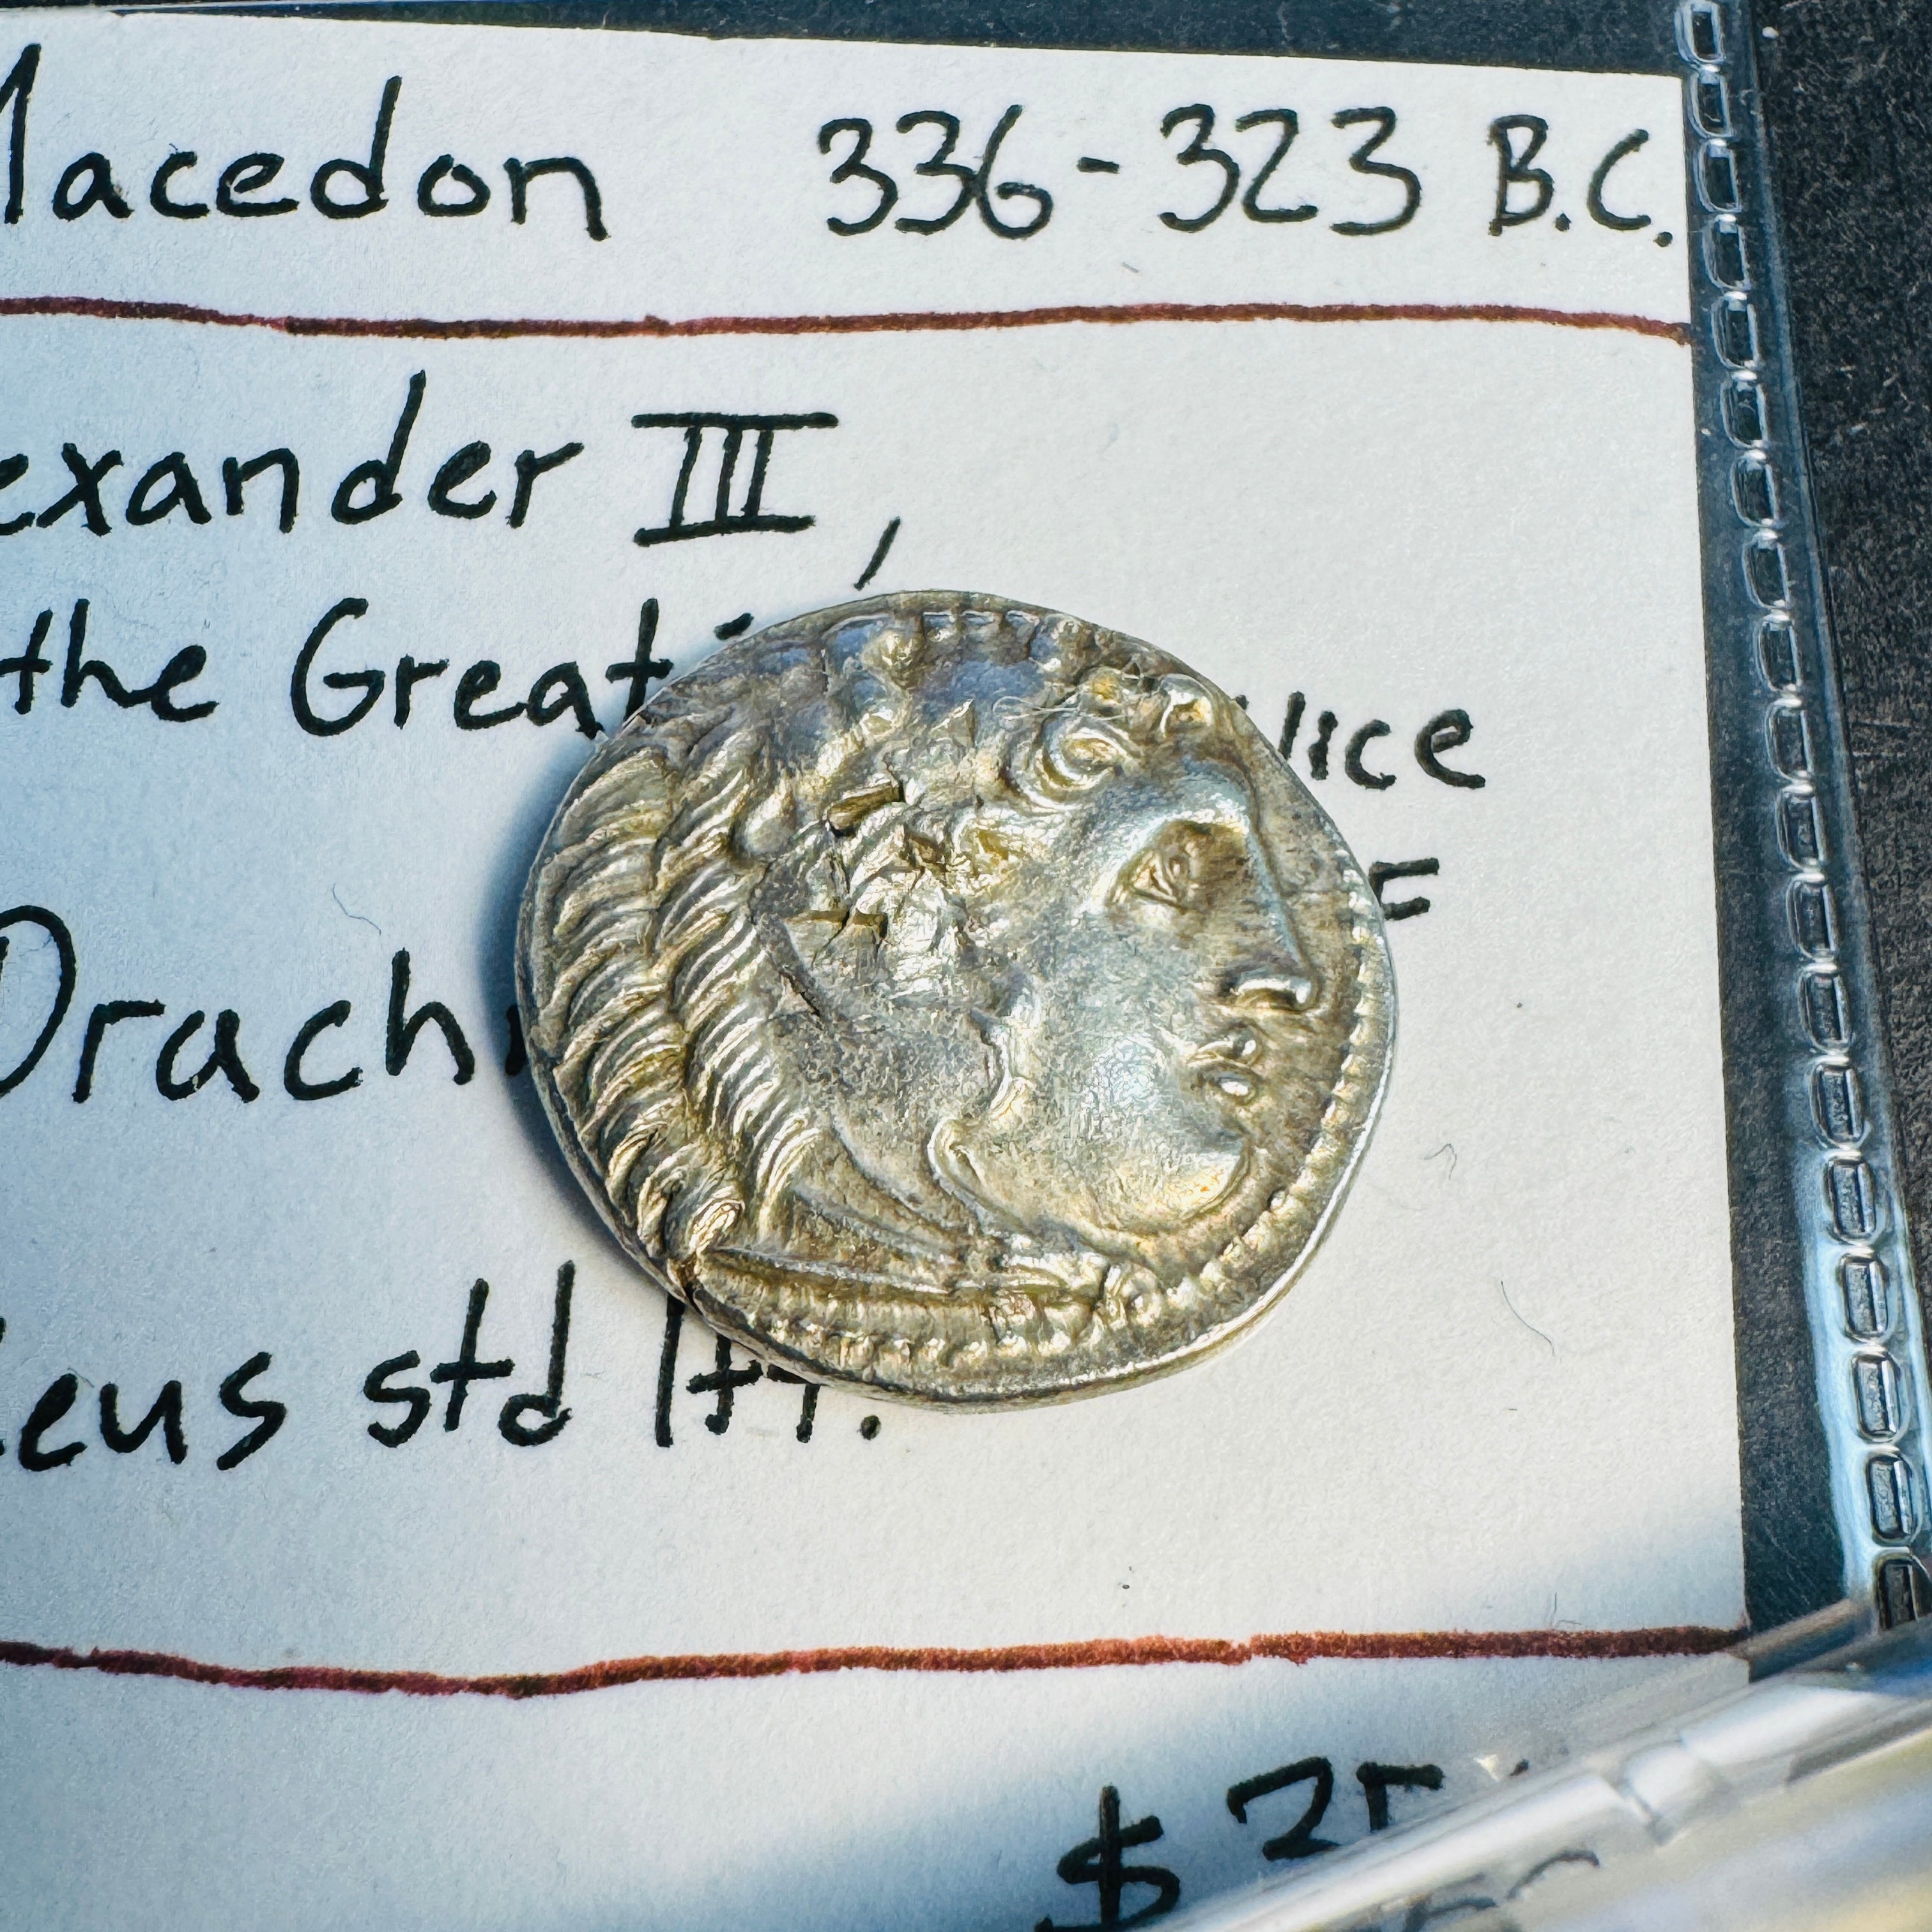 Macedon 336-323 B.C.
exander III,
the Great
lice
F
Drach
eus std lft.
$ 35